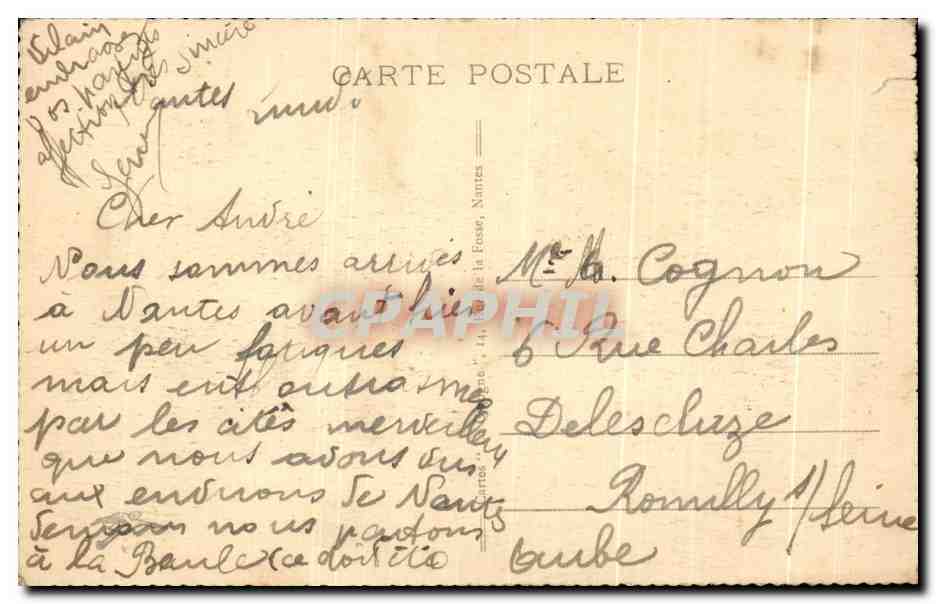 CARTE POSTALE
Nantes lundi
Cher André
Nous sommes arrivés
à Nantes avant hier
un peu fatigués
mais enthousiasmés
par les cités merveilleux
que nous avons vus
aux environs de Nantes
demain nous partons
à la Baule (ce doit être
embrassez
vos parents
affection très sincère
Cartes 14, Rue de la Fosse, Nantes
CPAPHIL
Mr Cognon
6 Rue Charles
Delescluze
Romilly s/ Seine
Aube